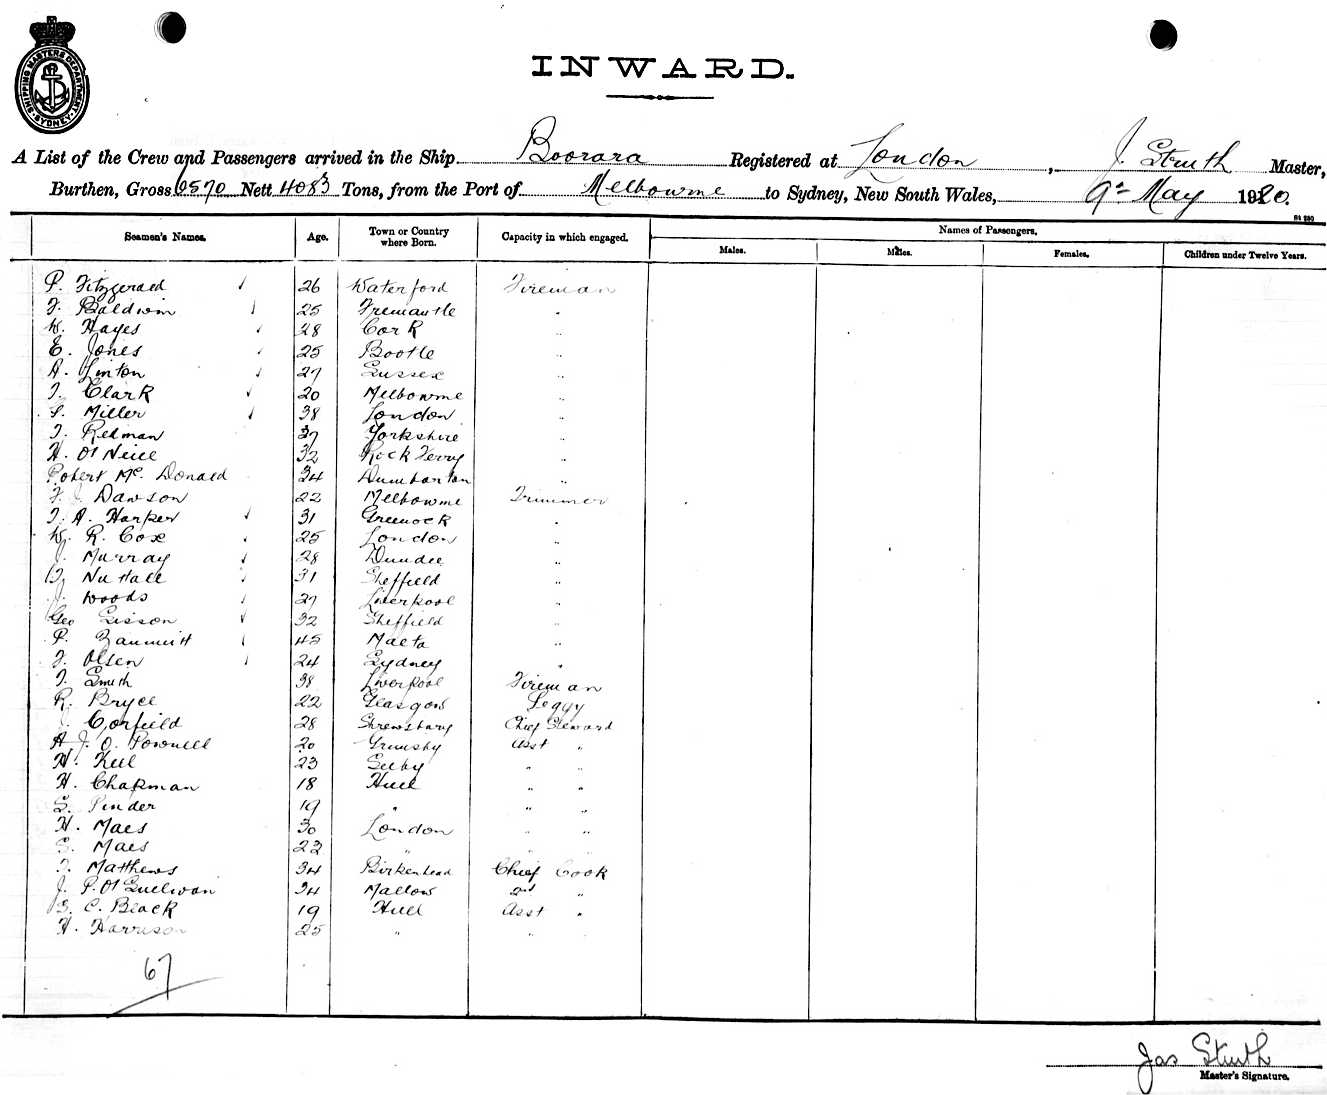 SHIPPING MASTERS DEPARTMENT SYDNEY
INWARD.
A List of the Crew and Passengers arrived in the Ship Boorara Registered at London, J. Struth Master,
Burthen, Gross 6570 Nett 4083 Tons, from the Port of Melbourne to Sydney, New South Wales, 9th May 1920.
Seamen's Names. Age. Town or Country where Born. Capacity in which engaged. Names of Passengers.
Males. Males. Females. Children under Twelve Years.
P. Fitzgerald 26 Waterford Fireman
F. Baldwin 25 Fremantle "
W. Hayes 28 Cork "
E. Jones 25 Bootle "
A. Linton 27 Sussex "
T. Clark 20 Melbourne "
S. Miller 38 London "
T. Redman 37 Yorkshire "
H. O'Neill 32 Rock Ferry "
Robert Mc. Donald 34 Dumbarton "
F. J. Dawson 22 Melbourne Trimmer
T. A. Harper 31 Greenock "
W. R. Cox 25 London "
J. Murray 28 Dundee "
Nuttall 31 Sheffield "
J. Woods 27 Liverpool "
Geo Sisson 32 Sheffield "
P. Zammitt 45 Malta "
F. Olsen 24 Sydney "
T. Smith 38 Liverpool Fireman
R. Bryce 22 Glasgow Peggy
J. Corfield 28 Shrewsbury Chief Steward
A. J. O. Pownell 20 Grimsby Asst "
H. Keel 23 Selby " "
H. Chapman 18 Hull " "
S. Pinder 19 " " "
H. Maes 30 London " "
S. Maes 22 " " "
T. Matthews 34 Birkenhead Chief Cook
J. P. O'Sullivan 34 Mallow 2nd "
C. Black 19 Hull Asst "
H. Harrison 25 " "
67
Jas Struth
Master's Signature.